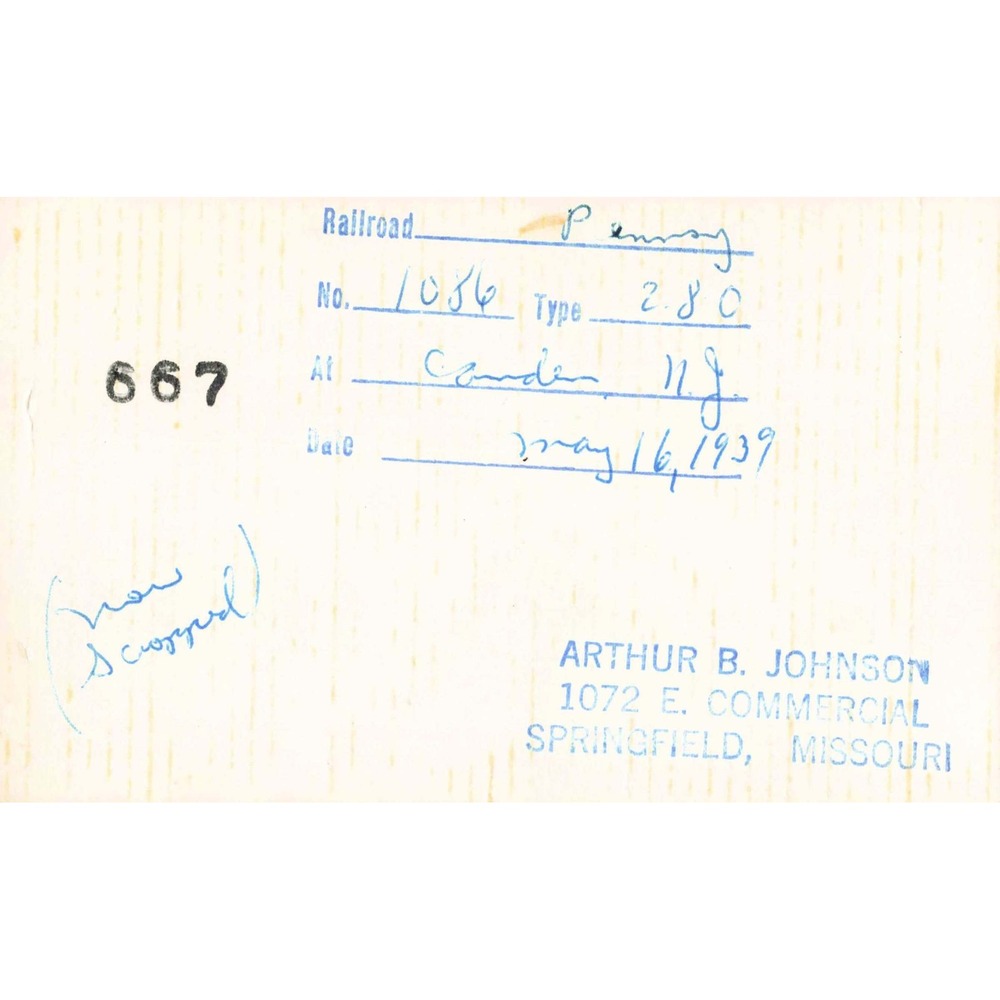 Railroad Pennsy
No. 1086 Type 2-8 0
At Camden, N.J.
667
Date May 16, 1939
(now
scrapped)
ARTHUR B. JOHNSON
1072 E. COMMERCIAL
SPRINGFIELD, MISSOURI